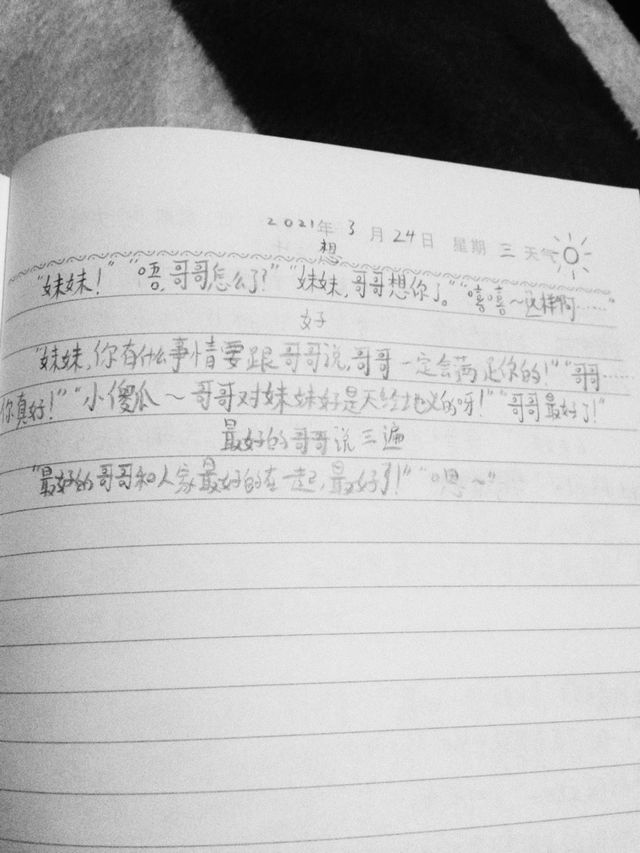 2021年 3月 24日 星期三 天气
想
“妹妹！”“唔,哥哥怎么了？”“妹妹,哥哥想你了。”“嘻嘻～这样啊……”
好
“妹妹,你有什么事情要跟哥哥说,哥哥一定会满足你的！”“哥哥……
你真好！”“小傻瓜～哥哥对妹妹好是天经地义的呀！”“哥哥最好了！”
最好的哥哥说三遍
“最好的哥哥和人家最好的在一起,最好了！”“嗯～”